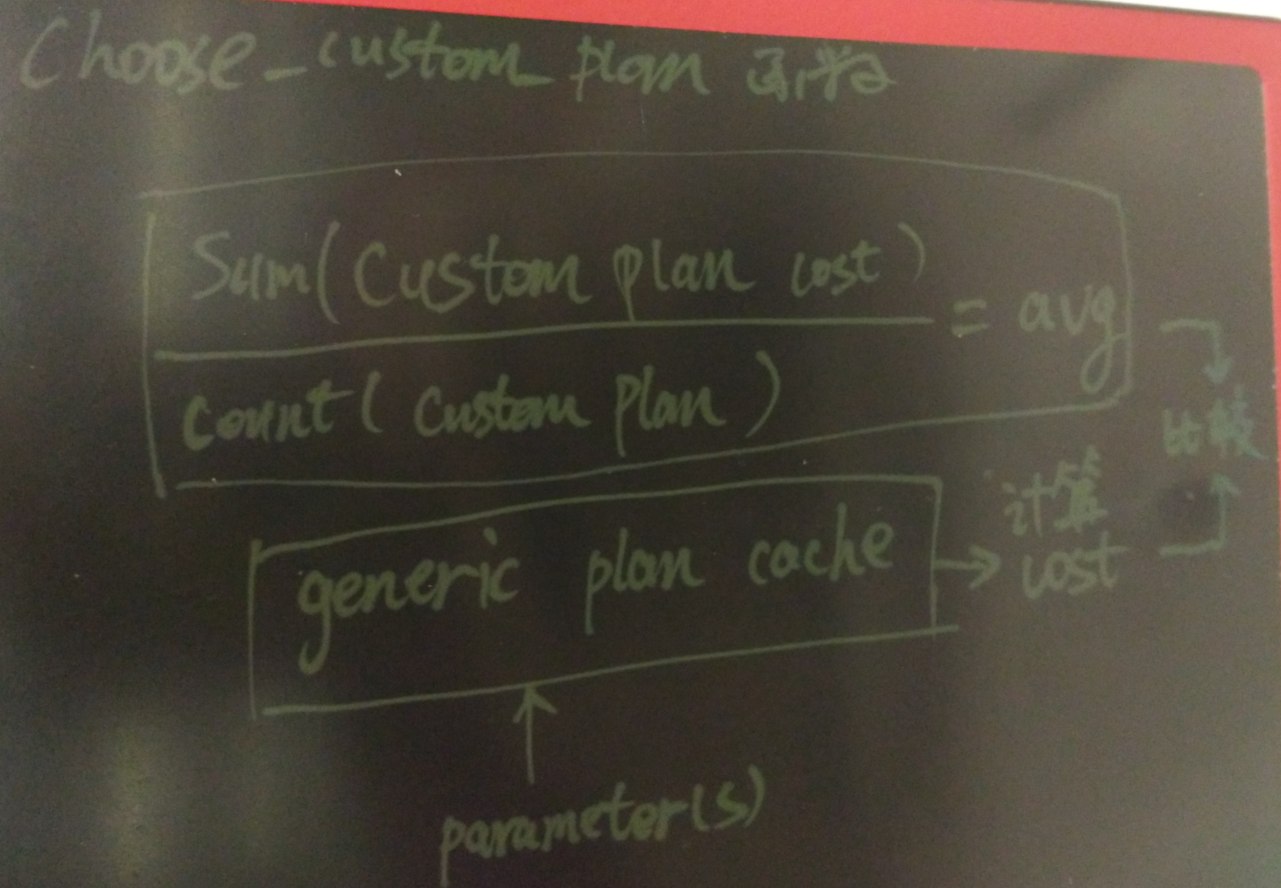 Choose_custom_plan 函数
Sum(Custom plan cost)
= avg
count(custom plan)
比较
generic plan cache
计算
cost
parameter(s)